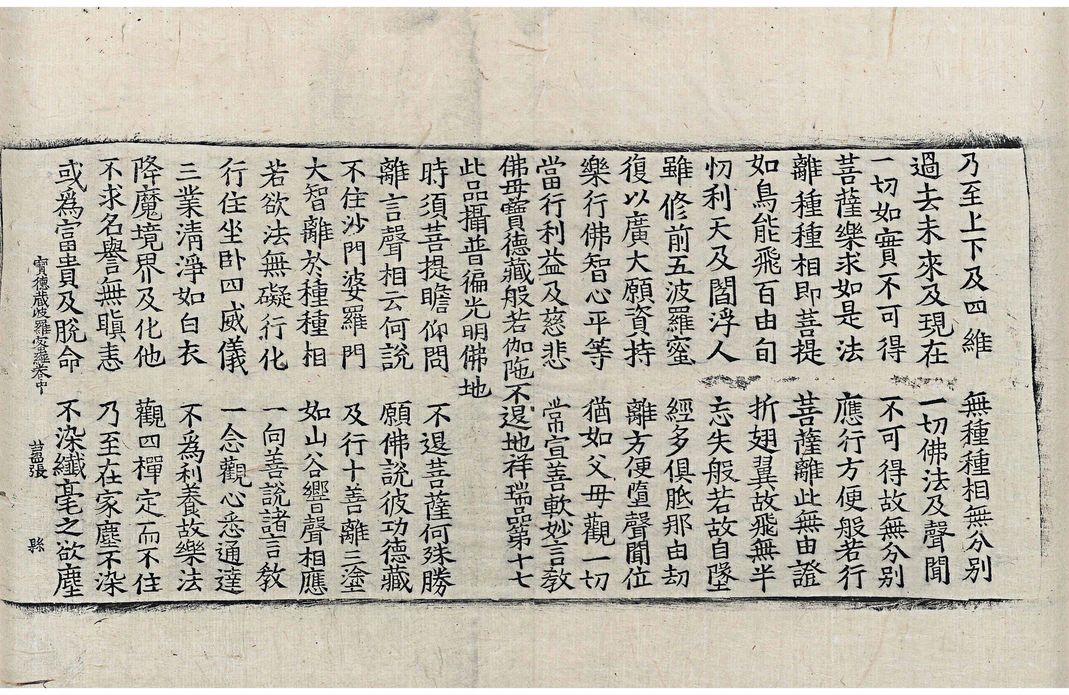 乃至上下及四維　無種種相無分別
過去未來及現在　一切佛法及聲聞
一切如實不可得　不可得故無分別
菩薩樂求如是法　應行方便般若行
離種種相即菩提　菩薩離此無由證
如鳥能飛百由旬　折翅翼故飛無半
忉利天及閻浮人　忘失般若故自墜
雖修前五波羅蜜　經多俱胝那由劫
復以廣大願資持　離方便墮聲聞位
樂行佛智心平等　猶如父母觀一切
當行利益及慈悲　常宣善軟妙言教
佛母寶德藏般若伽陁不退地祥瑞品第十七
此品攝普徧光明佛地
時須菩提瞻仰問　不退菩薩何殊勝
離言聲相云何說　願佛說彼功德藏
不住沙門婆羅門　及行十善離三塗
大智離於種種相　如山谷響聲相應
若欲法無礙行化　一向善說諸言教
行住坐臥四威儀　一念觀心悉通達
三業清淨如白衣　不爲利養故樂法
降魔境界及化他　觀四禪定而不住
不求名譽無瞋恚　乃至在家塵不染
或爲富貴及脫命　不染纖毫之欲塵
寶德藏波羅蜜經卷中　張　縣